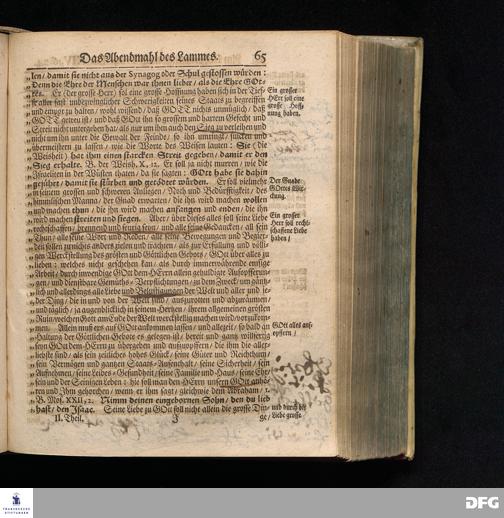 Das Abendmahl des Lammes. 65
len/ damit sie nicht aus der Synagog oder Schul gestossen würden:
Denn die Ehre der Menschen war ihnen lieber/ als die Ehre GOt-
tes. Er (der grosse Herr) soll eine grosse Hoffnung haben sich in der Tief-
fe aller fast unbezwinglicher Schwerigkeiten seines Staats zu begreiffen
und empor zu halten/ wohl wissend/ daß GOTT nichts unmüglich/ daß
GOTT getreu ist/ und daß GOtt ihn so grossem und hartem Gefecht und
Streit nicht untergeben hat/ als nur um ihm auch den Sieg zu verleihen und
nicht um ihn unter die Gewalt der Feinde/ so ihn umringt/ sincken und
übermeistern zu lassen/ wie die Worte des Weisen lauten: Sie (die
Weisheit) hat ihm einen starcken Streit gegeben/ damit er den
Sieg erhalte. B. der Weish. X, 12. Er soll ja nicht murren/ wie die
Israeliten in der Wüsten thaten/ da sie sagten: GOtt habe sie dahin
geführt/ damit sie stürben und getödtet würden. Er soll vielmehr
in seinem grossen und schweren Anligen/ Noth und Bedürfftigkeit/ des
himmlischen Manna/ der Gnad erwarten/ die ihn wird machen wollen
und machen thun/ die ihn wird machen anfangen und enden/ die ihn
wird machen streiten und siegen. Aber/ über dieses alles soll seine Liebe
rechtschaffen/ brennend und feurig seyn/ und alle seine Gedancken/ all sein
Thun/ alle seine Wort und Reden/ alle seine Bewegungen und Begier-
den sollen zu nichts anders zielen und trachten/ als zur Erfüllung und völli-
gen Werckstellung des grösten und Göttlichen Gebots/ GOtt über alles zu
lieben: welches nicht geschehen kan/ als durch immerwährende emsige
Arbeit/ durch inwendige GOtt dem HErrn allein gehuldigte Aufopfferun-
gen/ und dienstbare Gemüths-Verpflichtungen/ zu dem Zweck/ um gäntz-
lich und allerdings alle Liebe und Belustigungen der Welt und aller und je-
der Ding/ die in und von der Welt sind/ auszurotten und abzuräumen/
und täglich/ ja augenblicklich in seinem Hertzen/ ihrem allgemeinen grossen
Ruin/ welchen Gott am Ende der Welt werckstellig machen wird/ vorzukom-
men. Allein muß er es auf GOtt ankommen lassen/ und allezeit/ so bald an
Haltung der Göttlichen Gebote es gelegen ist/ bereit und gantz willfertig
seyn GOtt dem HErrn zu übergeben und aufzuopffern/ die ihm die aller-
liebste sind/ als sein zeitliches hohes Glück/ seine Güter und Reichthum/
sein Vermögen und gantzen Staats-Aufenthalt/ seine Sicherheit/ sein
Aufnehmen/ seine Leibes-Gesundheit/ seine Familie und Haus/ seine Ehr/
sein und der Seinigen Leben: hie soll man den HErrn unsern GOtt anhö-
ren und Ihm gehorchen/ wann er ihm sagt/ gleichwie dem Abraham/ 1.
B. Mos. XXII, 2. Nimm deinen eingebornen Sohn/ den du lieb
hast/ den Isaac. Seine Liebe zu GOtt soll nicht allein die grosse Din-
II. Theil. J ge/
Ein grosser
HErr soll eine
grosse Hoff-
nung haben.
Der Gnade
GOttes Wür-
ckung.
Ein grosser
Herr soll recht-
schaffene Liebe
haben/
GOtt alles auf-
opffern/
und durch die
Liebe grosse
DFG